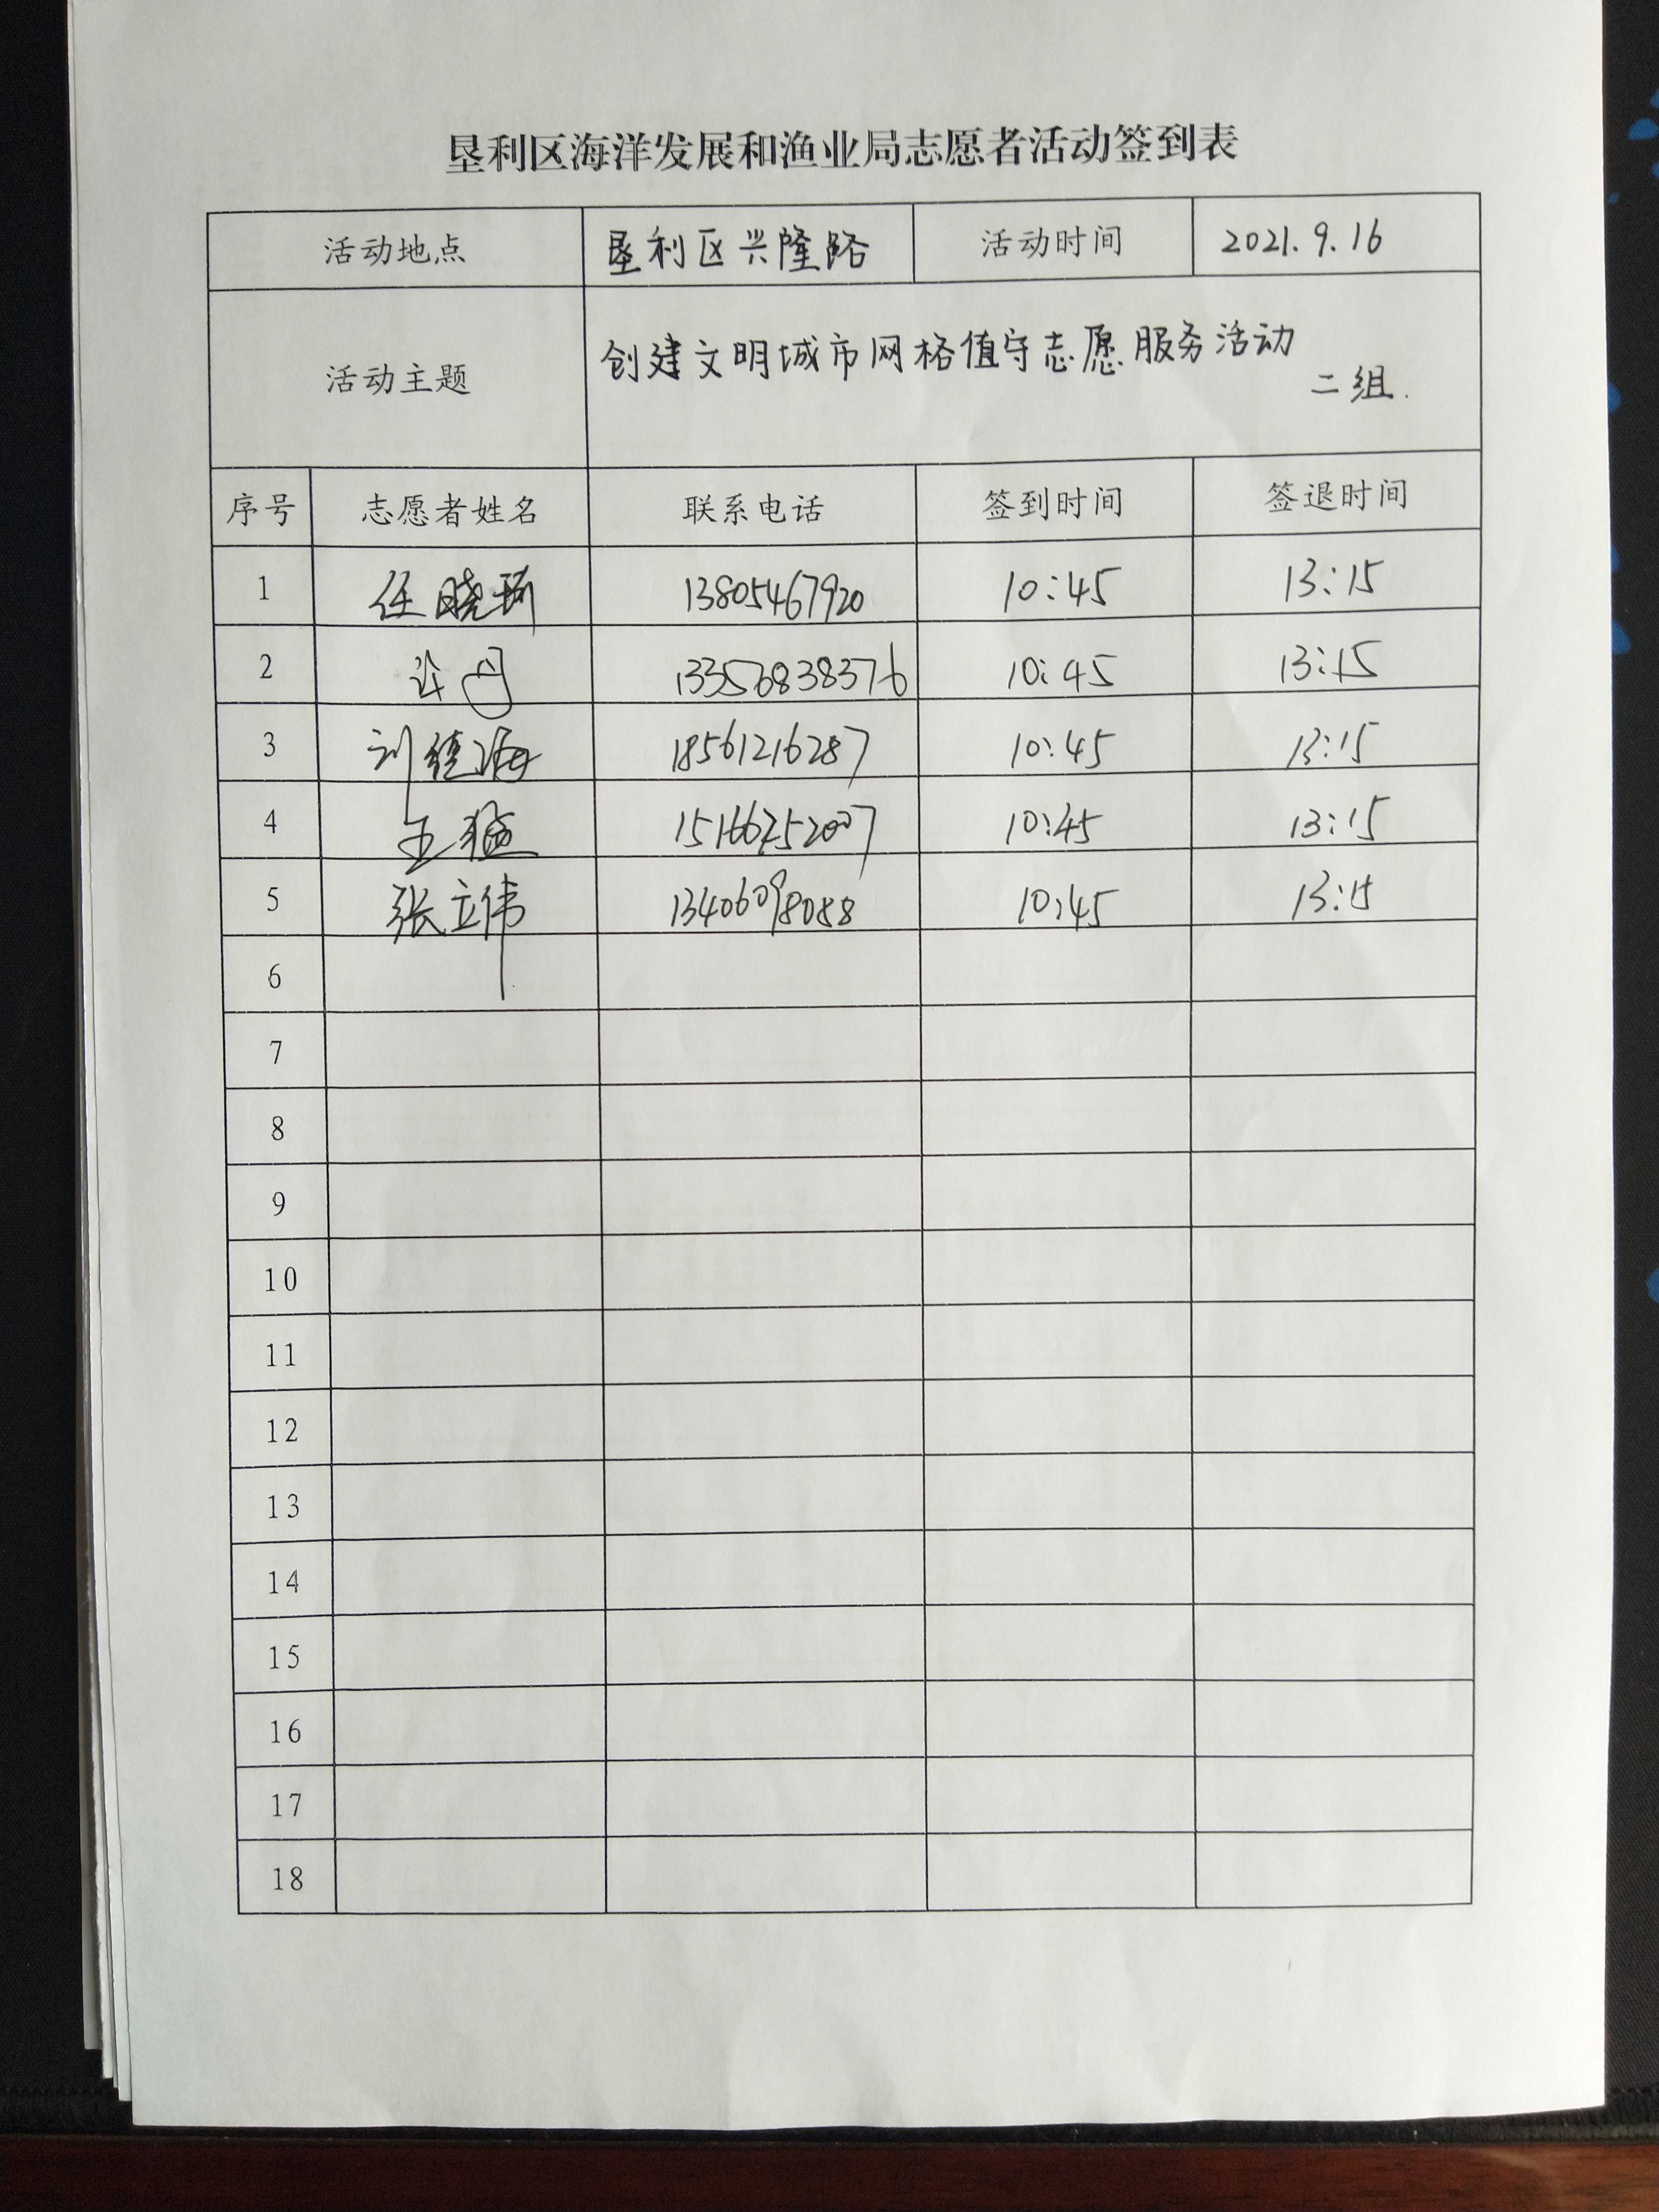 垦利区海洋发展和渔业局志愿者活动签到表
活动地点 垦利区兴隆路 活动时间 2021.9.16
活动主题 创建文明城市网格值守志愿服务活动
二组.
序号 志愿者姓名 联系电话 签到时间 签退时间
1 任晓 13805467920 10:45 13:15
2 许丹 13356838376 10:45 13:15
3 刘德海 18561216287 10:45 13:15
4 王猛 15166252007 10:45 13:15
5 张立伟 13406098088 10:45 13:15
6
7
8
9
10
11
12
13
14
15
16
17
18